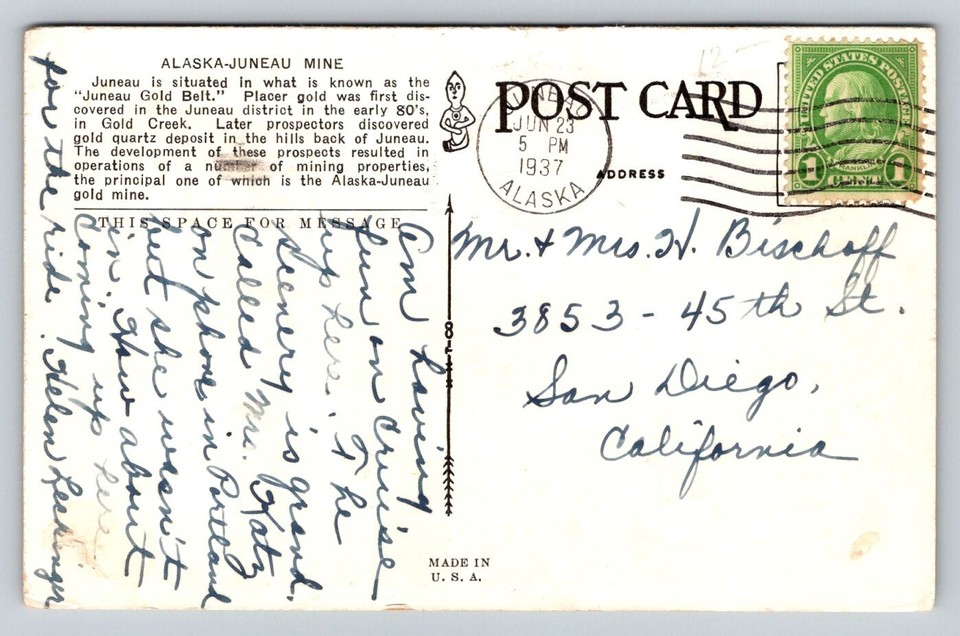 ALASKA-JUNEAU MINE
Juneau is situated in what is known as the
"Juneau Gold Belt." Placer gold was first dis-
covered in the Juneau district in the early 80's,
in Gold Creek. Later prospectors discovered
gold quartz deposit in the hills back of Juneau.
The development of these prospects resulted in
operations of a number of mining properties,
the principal one of which is the Alaska-Juneau
gold mine.
THIS SPACE FOR MESSAGE
Am having
fun on cruise
up here. The
scenery is grand.
Called Mr. Katz
on phone in Portland
but she wasn't
in. How about
coming up here
for the ride. Helen
POST CARD
ADDRESS
JUNEAU
JUN 23
5 PM
1937
ALASKA
UNITED STATES POSTAGE
1 FRANKLIN 1
Mr. & Mrs. H. Bischoff
3853 - 45th St.
San Diego,
California
MADE IN
U. S. A.